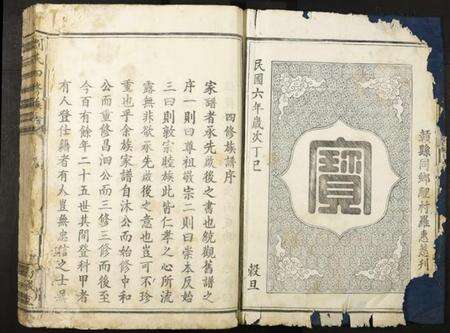 縣同鄉竹羅惠慈刊
寶
民國六年歲次丁巳
穀旦
四修族譜序
家譜者承先啟後之書也統觀舊譜之
序一則曰尊祖敬宗二則曰崇本反始
三曰則敦宗睦族此皆仁孝之心所流
露無非欲承先啟後之意也豈可不珍
重也乎余族家譜自沐公而始修中和
公而重修昌泗公而三修三修而後至
今百有餘年二十五世其間登科甲者
有人登仕籍者有人豈無忠信之士且
四修